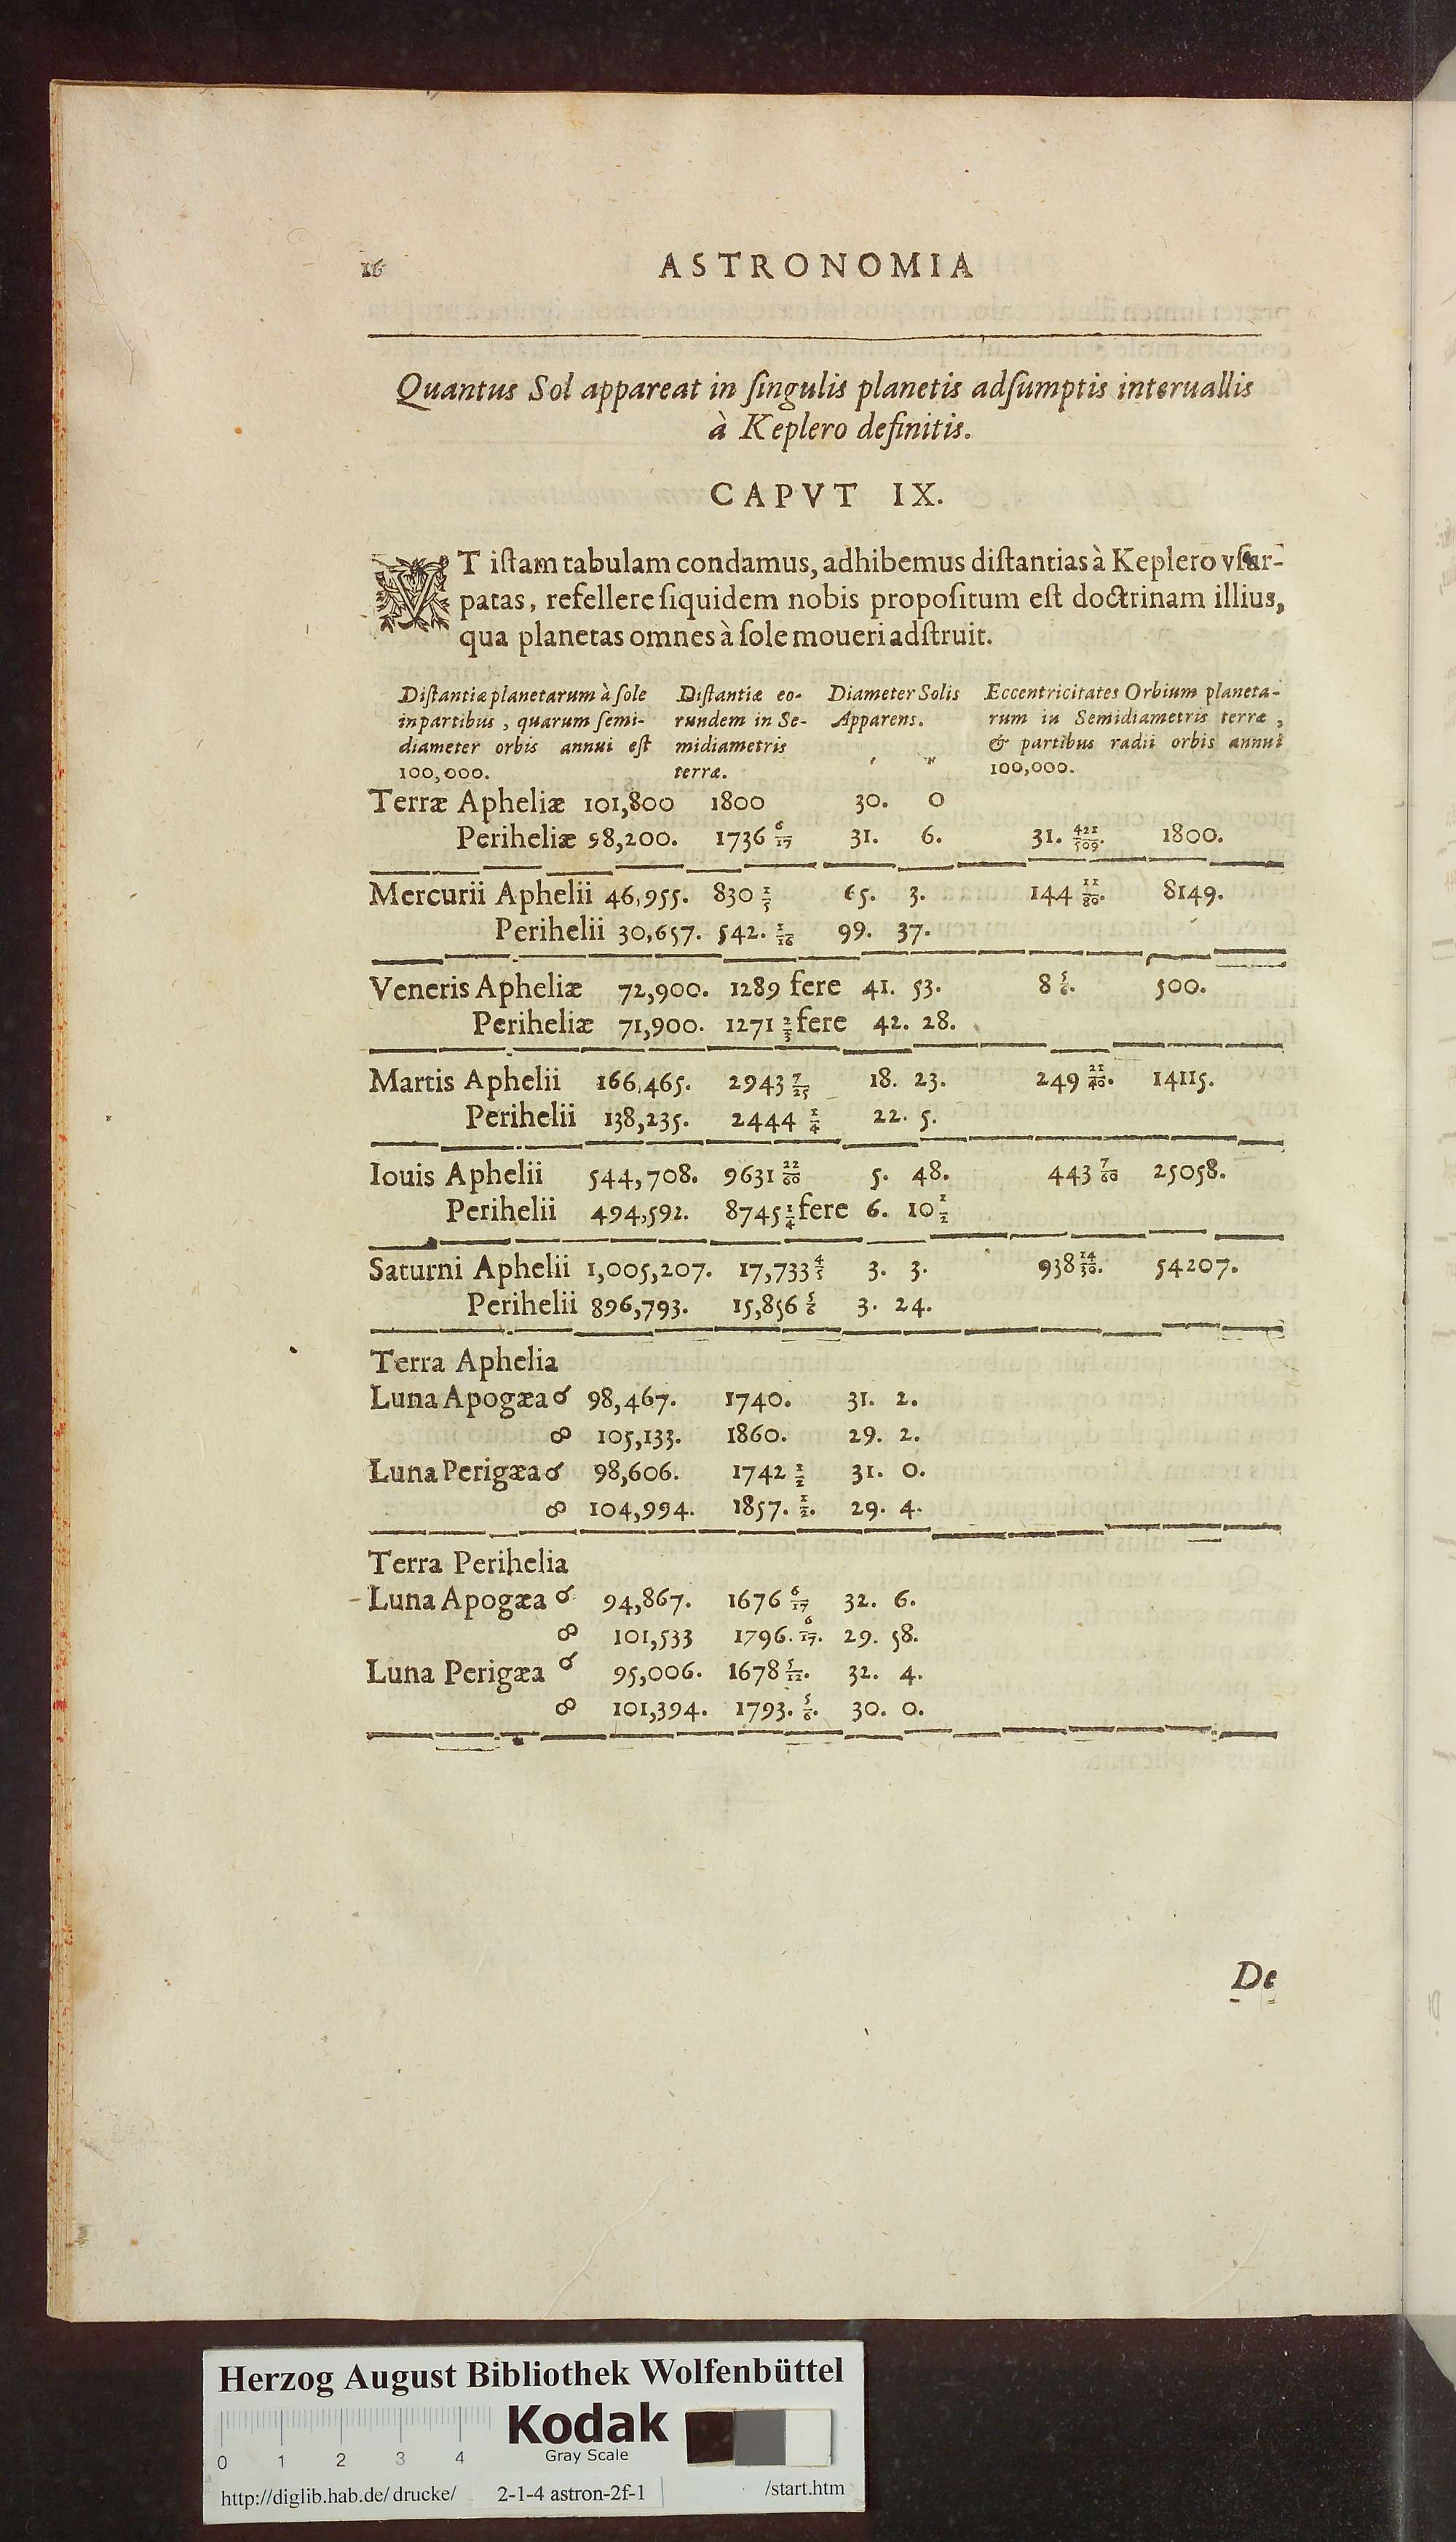 16 ASTRONOMIA
Quantus Sol appareat in ſingulis planetis adſumptis interuallis
à Keplero definitis.
CAPVT IX.
VT iſtam tabulam condamus, adhibemus diſtantias à Keplero vſur-
patas, refellere ſiquidem nobis propoſitum eſt doctrinam illius,
qua planetas omnes à ſole moueri adſtruit.
Diſtantiæ planetarum à ſole Diſtantiæ eo- Diameter Solis Eccentricitates Orbium planeta-
in partibus, quarum ſemi- rundem in Se- Apparens. rum in Semidiametris terræ,
diameter orbis annui eſt midiametris & partibus radii orbis annui
100,000. terræ. ′ ″ 100,000.
Terræ Apheliæ 101,800 1800 30. 0
Periheliæ 98,200. 1736 6/17 31. 6. 31. 421/509. 1800.
Mercurii Aphelii 46,955. 830 1/5 65. 3. 144 11/80. 8149.
Perihelii 30,657. 542. 1/16 99. 37.
Veneris Apheliæ 72,900. 1289 fere 41. 53. 8 5/6. 500.
Periheliæ 71,900. 1271 2/3 fere 42. 28.
Martis Aphelii 166,465. 2943 7/25 18. 23. 249 21/40. 14115.
Perihelii 138,235. 2444 1/4 22. 5.
Iouis Aphelii 544,708. 9631 22/60 5. 48. 443 7/60 25058.
Perihelii 494,592. 8745 1/4 fere 6. 10 1/2
Saturni Aphelii 1,005,207. 17,733 4/5 3. 3. 938 14/30. 54207.
Perihelii 896,793. 15,856 5/6 3. 24.
Terra Aphelia
Luna Apogæa ☌ 98,467. 1740. 31. 2.
☍ 105,133. 1860. 29. 2.
Luna Perigæa ☌ 98,606. 1742 1/2 31. 0.
☍ 104,994. 1857. 1/2. 29. 4.
Terra Perihelia
Luna Apogæa ☌ 94,867. 1676 6/17 32. 6.
☍ 101,533 1796. 6/17. 29. 58.
Luna Perigæa ☌ 95,006. 1678 5/12. 32. 4.
☍ 101,394. 1793. 5/6. 30. 0.
De
Herzog August Bibliothek Wolfenbüttel
Kodak
Gray Scale
0 1 2 3 4
http://diglib.hab.de/drucke/ 2-1-4 astron-2f-1 /start.htm